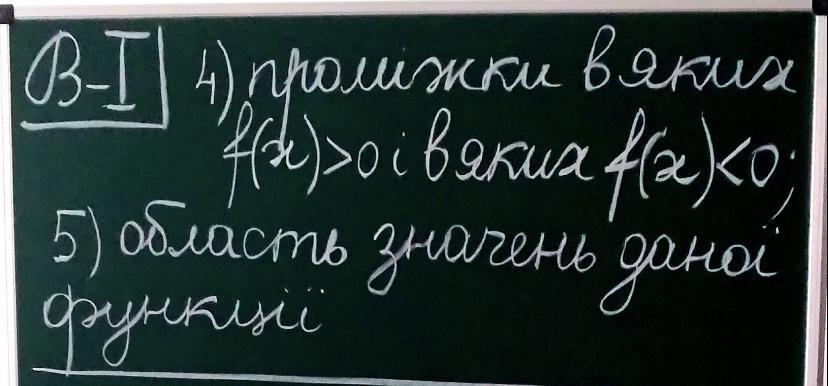 В-I 4) проміжки в яких
f(x)>0 і в яких f(x)<0;
5) область значень даної
функції